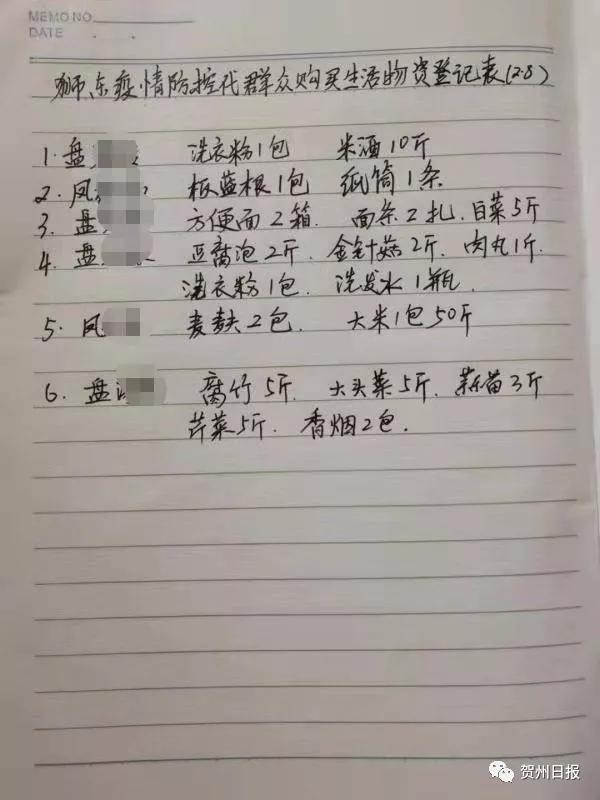 MEMO NO.
DATE . .
狮东疫情防控代群众购买生活物资登记表(2.8)
1.盘 洗衣粉1包 米酒10斤
2.凤 板蓝根1包 纸筒1条
3.盘 方便面2箱. 面条2扎. 白菜5斤
4.盘 豆腐泡2斤. 金针菇2斤. 肉丸1斤.
洗衣粉1包. 洗发水1瓶.
5.凤 麦麸2包. 大米1包50斤
6.盘 腐竹5斤. 大头菜5斤. 蒜苗3斤
芹菜5斤. 香烟2包.
贺州日报